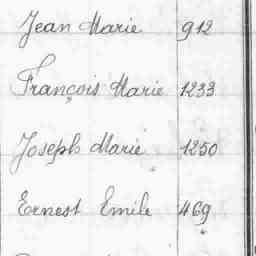 Jean Marie 912
François Marie 1233
Joseph Marie 1250
Ernest Emile 469